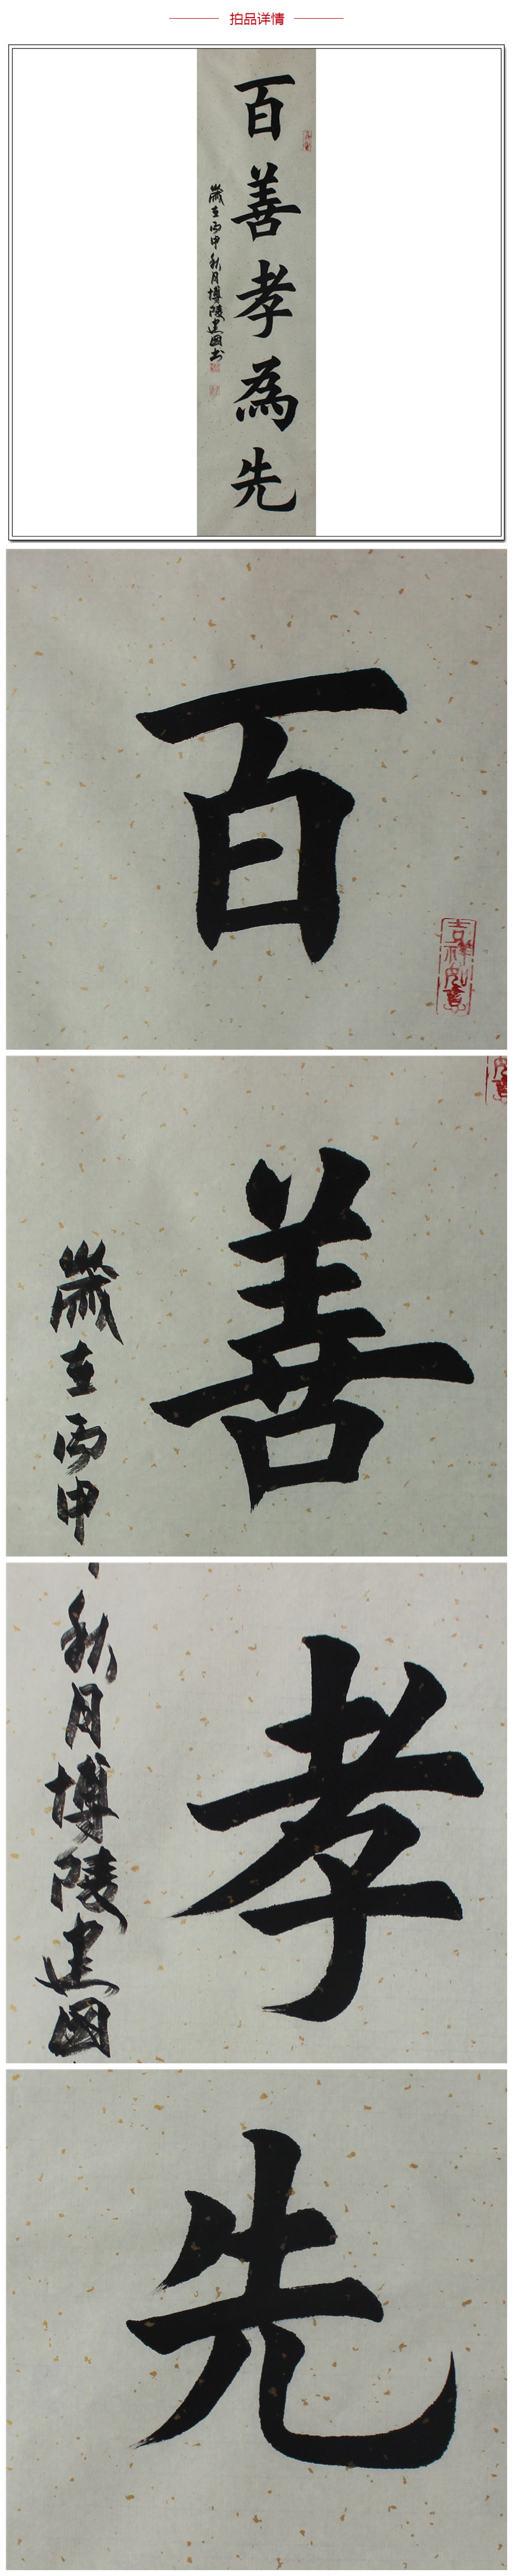 拍品详情
百善孝為先
歲在丙申秋月博陵建国书
百
吉祥如意
善
歲在丙申
孝
秋月博陵建国
先